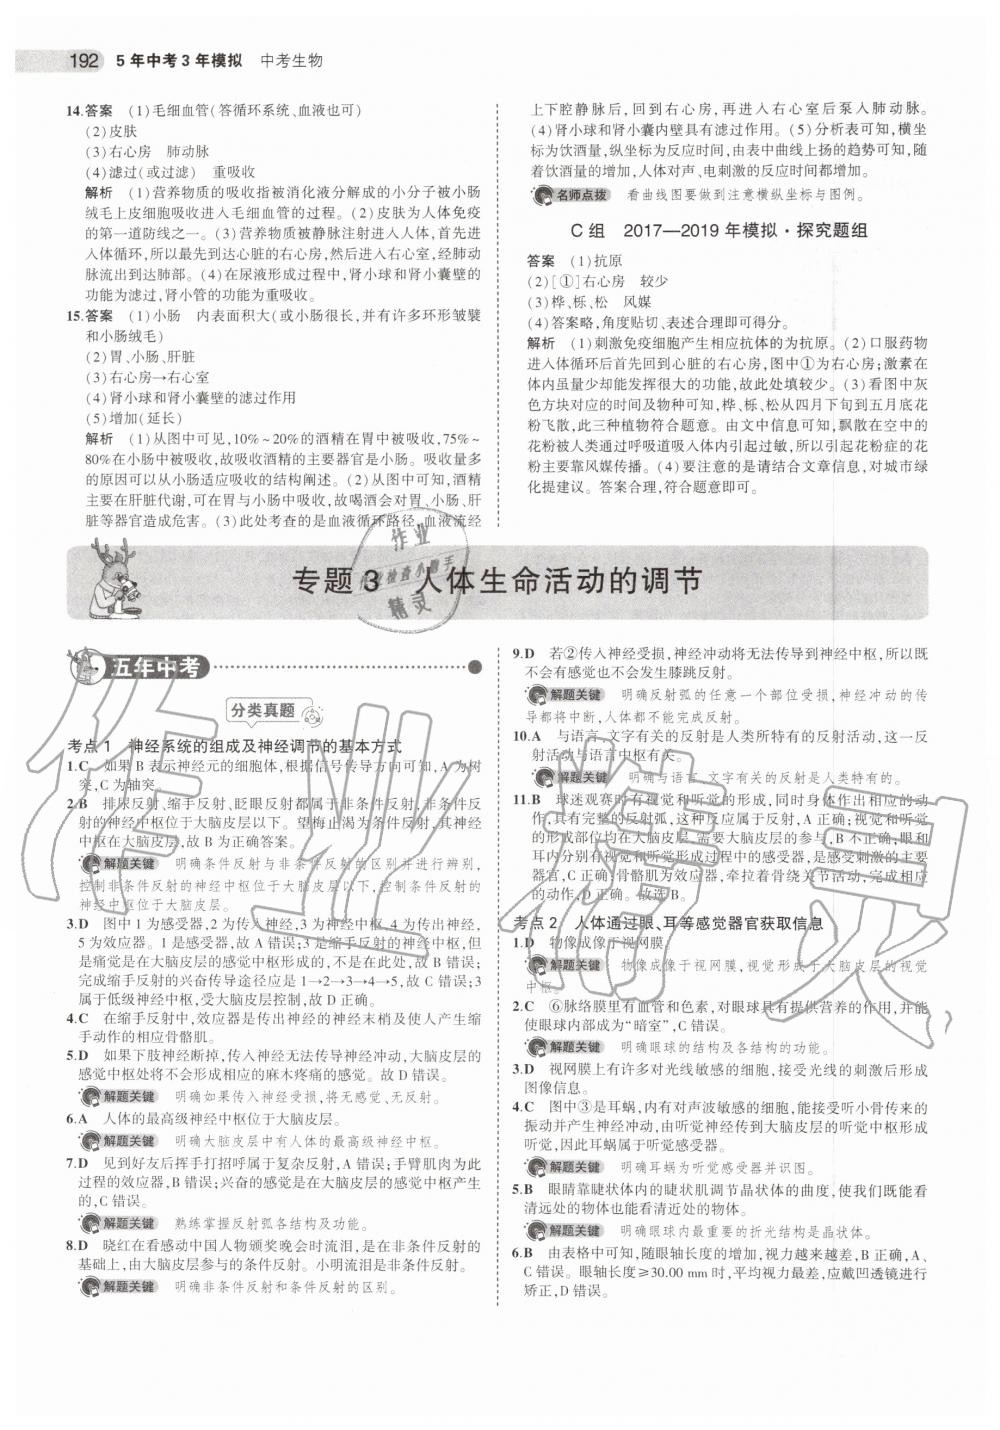 192 5年中考3年模拟 中考生物
14.答案 (1)毛细血管(答循环系统、血液也可)
(2)皮肤
(3)右心房 肺动脉
(4)滤过(或过滤) 重吸收
解析 (1)营养物质的吸收指被消化液分解成的小分子被小肠
绒毛上皮细胞吸收进入毛细血管的过程。(2)皮肤为人体免疫
的第一道防线之一。(3)营养物质被静脉注射进入人体,首先进
入体循环,所以最先到达心脏的右心房,然后进入右心室,经肺动
脉流出到达肺部。(4)在尿液形成过程中,肾小球和肾小囊壁的
功能为滤过,肾小管的功能为重吸收。
15.答案 (1)小肠 内表面积大(或小肠很长,并有许多环形皱襞
和小肠绒毛)
(2)胃、小肠、肝脏
(3)右心房→右心室
(4)肾小球和肾小囊壁的滤过作用
(5)增加(延长)
解析 (1)从图中可见,10%~20%的酒精在胃中被吸收,75%~
80%在小肠中被吸收,故吸收酒精的主要器官是小肠。吸收量多
的原因可以从小肠适应吸收的结构阐述。(2)从图中可知,酒精
主要在肝脏代谢,可在胃与小肠中吸收,故喝酒会对胃、小肠、肝
脏等器官造成危害。(3)此处考查的是血液循环路径,血液流经
上下腔静脉后,回到右心房,再进入右心室后泵入肺动脉。
(4)肾小球和肾小囊内壁具有滤过作用。(5)分析表可知,横坐
标为饮酒量,纵坐标为反应时间,由表中曲线上扬的趋势可知,随
着饮酒量的增加,人体对声、电刺激的反应时间都增加。
名师点拨 看曲线图要做到注意横纵坐标与图例。
C组 2017—2019年模拟·探究题组
答案 (1)抗原
(2)[①]右心房 较少
(3)桦、栎、松 风媒
(4)答案略,角度贴切、表述合理即可得分。
解析 (1)刺激免疫细胞产生相应抗体的为抗原。(2)口服药物
进入体循环后首先回到心脏的右心房,图中①为右心房;激素在
体内虽量少却能发挥很大的功能,故此处填较少。(3)看图中灰
色方块对应的时间及物种可知,桦、栎、松从四月下旬到五月底花
粉飞散,此三种植物符合题意。由文中信息可知,飘散在空中的
花粉被人类通过呼吸道吸入体内引起过敏,所以引起花粉症的花
粉主要靠风媒传播。(4)要注意的是请结合文章信息,对城市绿
化提建议。答案合理,符合题意即可。
专题3 人体生命活动的调节
五年中考
分类真题
考点1 神经系统的组成及神经调节的基本方式
1.C 如果B表示神经元的细胞体,根据信号传导方向可知,A为树
突,C为轴突。
2.B 排尿反射、缩手反射、眨眼反射都属于非条件反射,非条件反
射的神经中枢位于大脑皮层以下。望梅止渴为条件反射,其神经
中枢在大脑皮层,故B为正确答案。
解题关键 明确条件反射与非条件反射的区别并进行辨别,
控制非条件反射的神经中枢位于大脑皮层以下,控制条件反射的
神经中枢位于大脑皮层。
3.D 图中1为感受器,2为传入神经,3为神经中枢,4为传出神经,
5为效应器。1是感受器,故A错误;3是缩手反射的神经中枢,但
是痛觉是在大脑皮层的感觉中枢形成的,不是在此处,故B错误;
完成缩手反射的兴奋传导途径应是1→2→3→4→5,故C错误;3
属于低级神经中枢,受大脑皮层控制,故D正确。
4.C 在缩手反射中,效应器是传出神经的神经末梢及使人产生缩
手动作的相应骨骼肌。
5.D 如果下肢神经断掉,传入神经无法传导神经冲动,大脑皮层的
感觉中枢处将不会形成相应的麻木疼痛的感觉。故D错误。
解题关键 明确如果传入神经受损,将无感觉、无反射。
6.A 人体的最高级神经中枢位于大脑皮层。
解题关键 明确大脑皮层中有人体的最高级神经中枢。
7.D 见到好友后挥手打招呼属于复杂反射,A错误;手臂肌肉为此
过程的效应器,B错误;兴奋的感觉是在大脑皮层的感觉中枢产生
的,C错误。
解题关键 熟练掌握反射弧各结构及功能。
8.D 晓红在看感动中国人物颁奖晚会时流泪,是在非条件反射的
基础上,由大脑皮层参与的条件反射。小明流泪是非条件反射。
解题关键 明确非条件反射和条件反射的区别。
9.D 若②传入神经受损,神经冲动将无法传导到神经中枢,所以既
不会有感觉也不会发生膝跳反射。
解题关键 明确反射弧的任意一个部位受损,神经冲动的传
导都将中断,人体都不能完成反射。
10.A 与语言、文字有关的反射是人类所特有的反射活动,这一反
射活动与语言中枢有关。
解题关键 明确与语言、文字有关的反射是人类特有的。
11.B 球迷观赛时有视觉和听觉的形成,同时身体作出相应的动
作,具有完整的反射弧,这种反应属于反射,A正确;视觉和听觉
的形成部位均在大脑皮层,需要大脑皮层的参与,B不正确;眼和
耳内分别有视觉和听觉形成过程中的感受器,是感受刺激的主要
器官,C正确;骨骼肌为效应器,牵拉着骨绕关节活动,完成相应
的动作,D正确。故选B。
考点2 人体通过眼、耳等感觉器官获取信息
1.D 物像成像于视网膜。
解题关键 物像成像于视网膜,视觉形成于大脑皮层的视觉
中枢。
2.C ⑥脉络膜里有血管和色素,对眼球具有提供营养的作用,并能
使眼球内部成为“暗室”,C错误。
解题关键 明确眼球的结构及各结构的功能。
3.D 视网膜上有许多对光线敏感的细胞,接受光线的刺激后形成
图像信息。
4.C 图中③是耳蜗,内有对声波敏感的细胞,能接受听小骨传来的
振动并产生神经冲动,由听觉神经传到大脑皮层的听觉中枢形成
听觉,因此耳蜗属于听觉感受器。
解题关键 明确耳蜗为听觉感受器并识图。
5.B 眼睛靠睫状体内的睫状肌调节晶状体的曲度,使我们既能看
清远处的物体也能看清近处的物体。
解题关键 明确眼球内最重要的折光结构是晶状体。
6.B 由表格中可知,随眼轴长度的增加,视力越来越差,B正确,A、
C错误。眼轴长度≥30.00 mm时,平均视力最差,应戴凹透镜进行
矫正,D错误。
作业
作业检查小助手
精灵
作业精灵